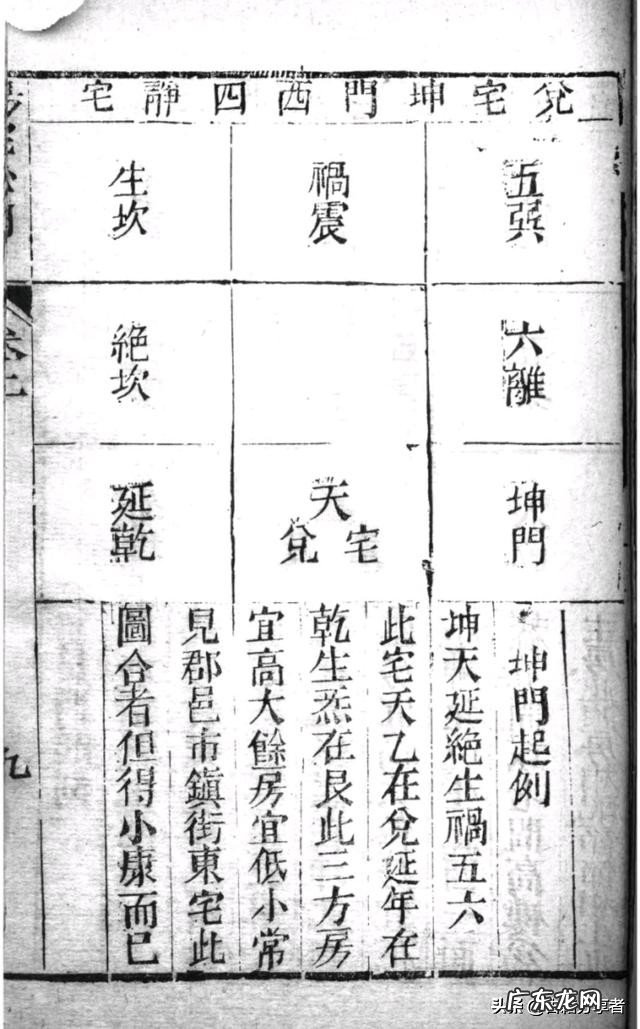 兌宅坤門西四靜宅
五巽
禍震
生坎
六離
絶坎
坤門
天
宅兌
延乾
坤門起例
坤天延絶生禍五六
此宅天乙在兌延年在
乾生炁在艮此三方房
宜高大餘房宜低小常
見郡邑市鎮街東宅此
圖合者但得小康而已
九
广东龙网